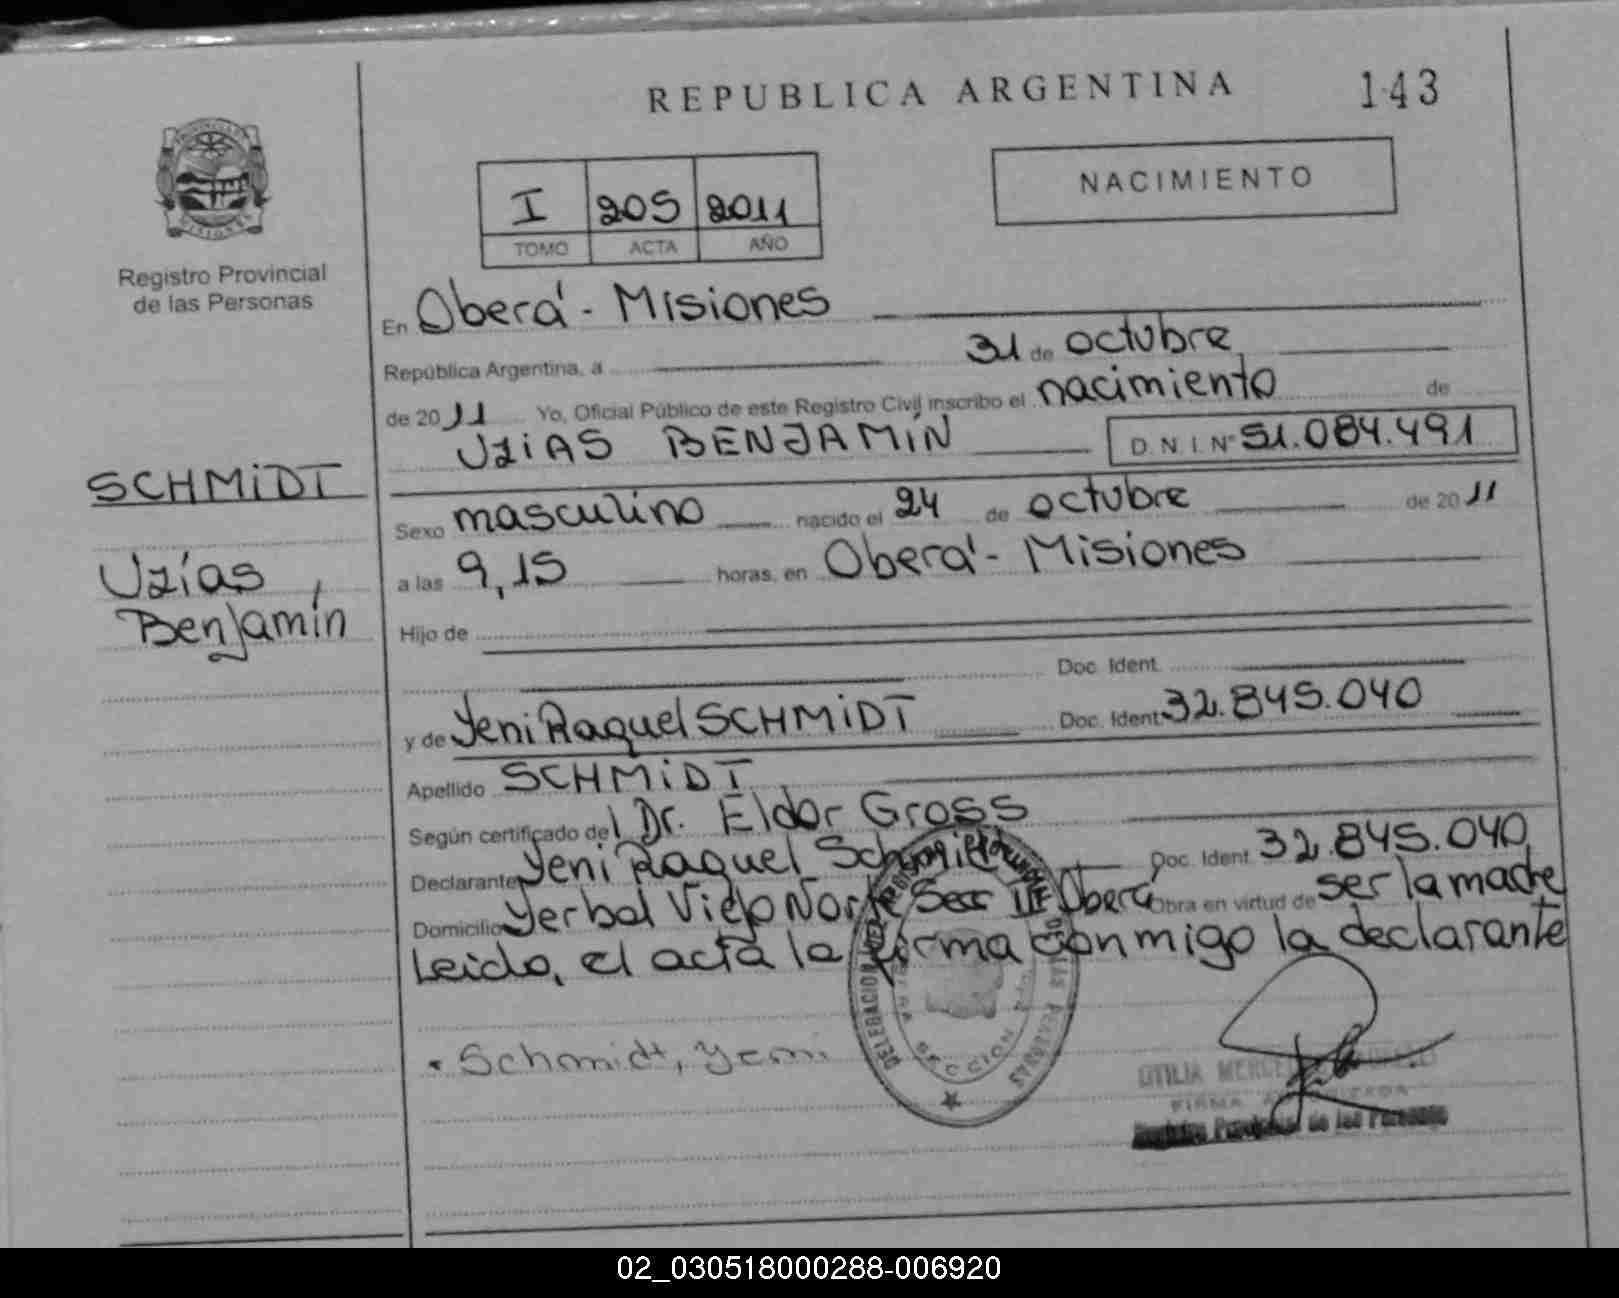 REPUBLICA ARGENTINA
143
PROVINCIA DE
MISIONES
Registro Provincial
de las Personas
I 205 2011
TOMO ACTA AÑO
NACIMIENTO
En Oberá - Misiones
República Argentina, a 31 de octubre
de 2011 Yo, Oficial Público de este Registro Civil inscribo el nacimiento de
UZÍAS BENJAMÍN D.N.I. Nº 51.084.491
SCHMIDT
Uzías,
Benjamín
Sexo masculino nacido el 24 de octubre de 2011
a las 9,15 horas, en Oberá - Misiones
Hijo de
Doc. Ident.
y de Yeni Raquel SCHMIDT Doc. Ident. 32.845.040
Apellido SCHMIDT
Según certificado del Dr. Eldor Gross
Declarante Yeni Raquel Schmidt Doc. Ident. 32.845.040
Domicilio Yerbal Viejo Norte Secc III Oberá Obra en virtud de ser la madre
Leido, el acta la firma conmigo la declarante
Schmidt, Yeni
DELEGACION DE LAS PERSONAS
SECCION
OTILIA
FIRMA AUTORIZADA
Registro Provincial de las Personas
02_030518000288-006920